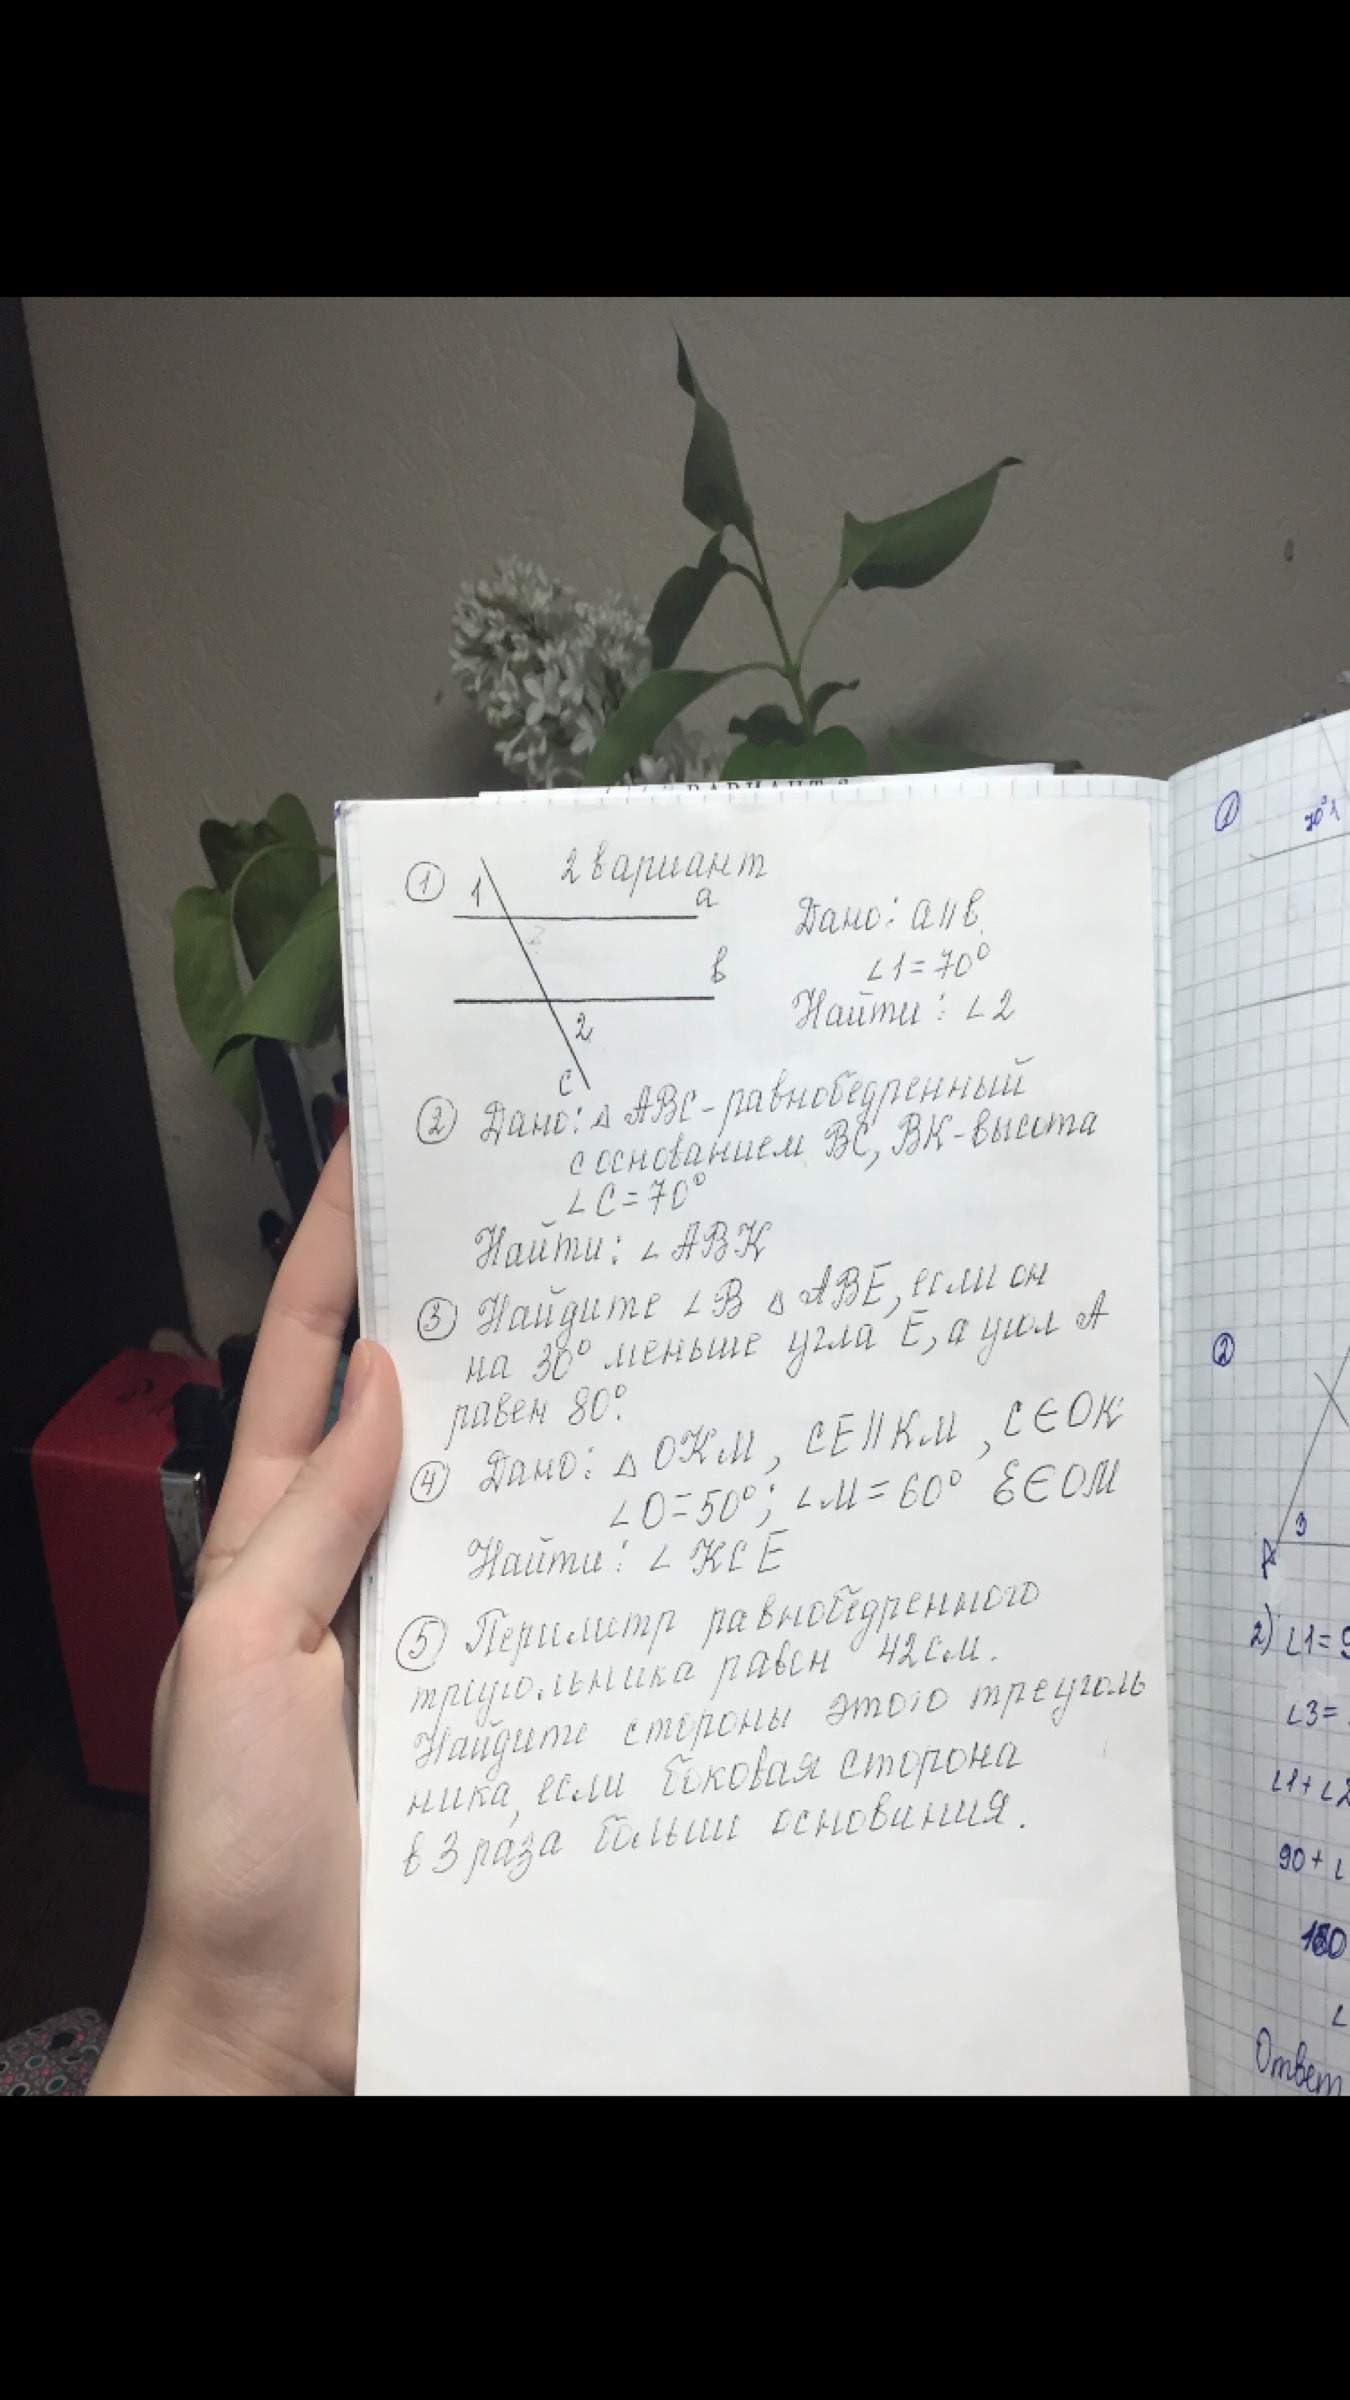 ВАРИАНТ
2 вариант
① 1 a
Дано: a||b
b
∠1=70°
2
Найти: ∠2
c
② Дано: △ ABC - равнобедренный
с основанием BC, BK - высота
∠C=70°
Найти: ∠ABK
③ Найдите ∠B △ ABE, если он
на 30° меньше угла E, а угол A
равен 80°.
④ Дано: △ OKM, CE||KM, C∈OK
∠O=50°; ∠M=60° E∈OM
Найти: ∠ KCE
⑤ Периметр равнобедренного
треугольника равен 42см.
Найдите стороны этого треуголь
ника, если боковая сторона
в 3 раза больши основиния.
①
70° 1
②
3
A
2) ∠1=9
∠3=
∠1+∠2
90+∠
∠
Ответ